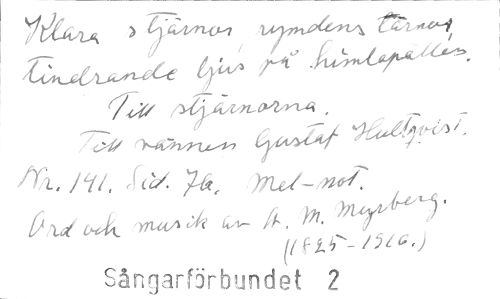 Klara stjärnor, rymdens tärnor,
tindrande ljus på himlapällen.
Till stjärnorna.
Till vännen Gustaf Hultqvist.
Nr. 141. Sid. 76. Mel-not.
Ord och musik av A. M. Myrberg.
(1825-1916.)
Sångarförbundet 2